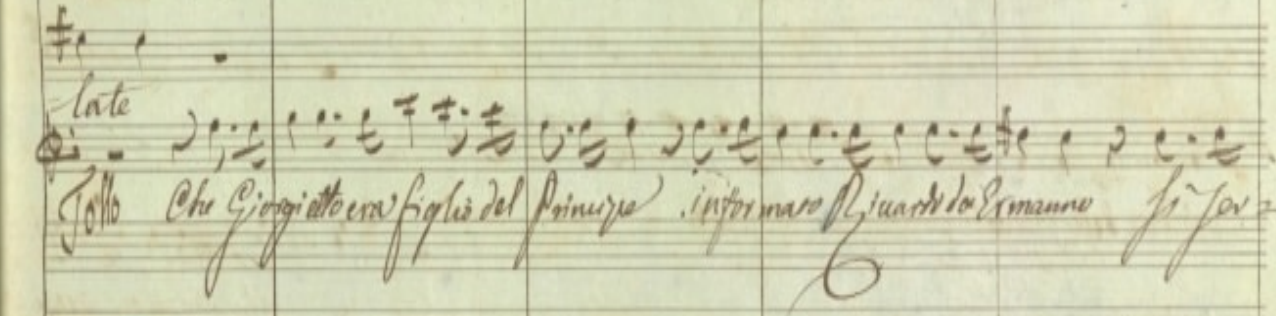 late
Tollo Che Giorgietto era figlio del Principe informato Ricardo da Ermanno si